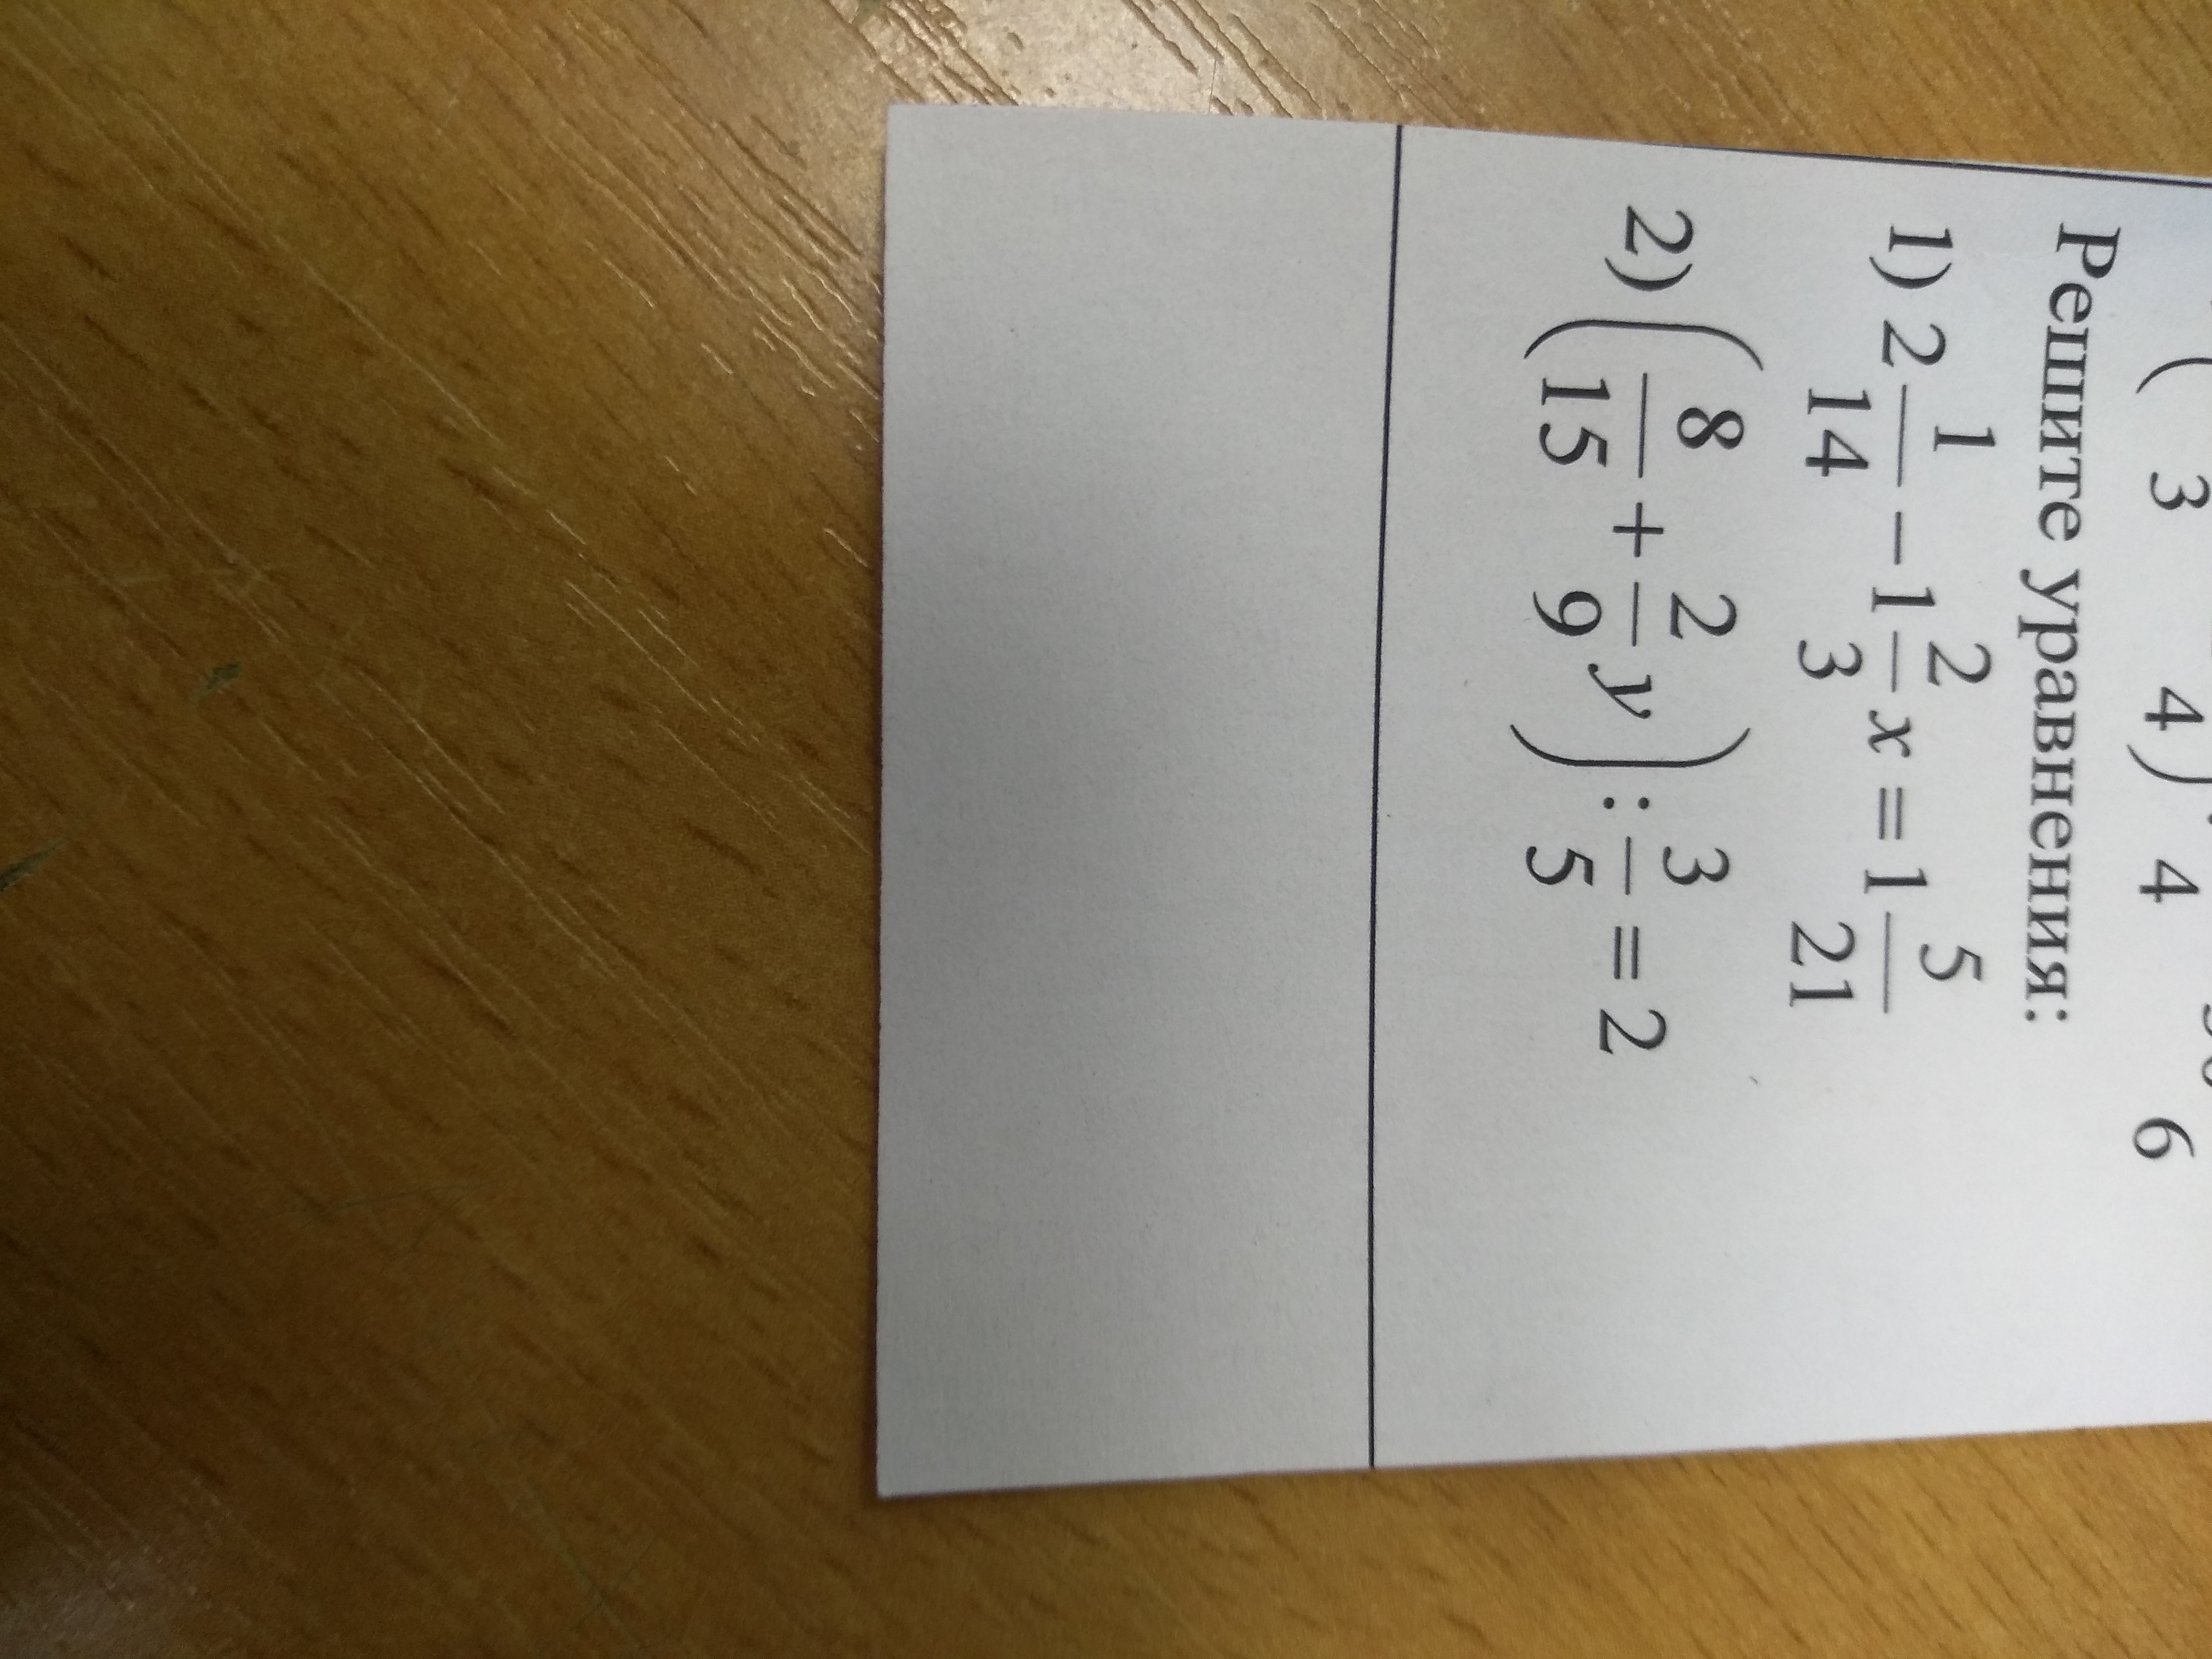 ( 3 4) 4 6
Решите уравнения:
1) 2 1/14 − 1 2/3 x = 1 5/21
2) (8/15 + 2/9 y) : 3/5 = 2